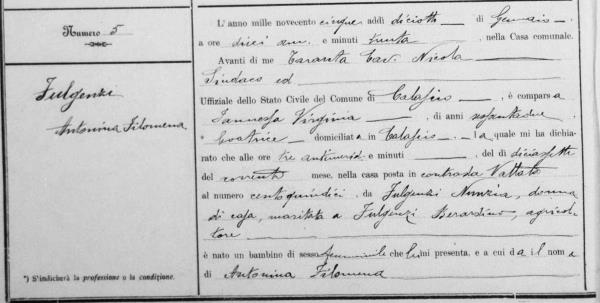 Numero 5
Fulgenzi
Antonina Filomena
*) S'indicherà la professione o la condizione.
L'anno mille novecento cinque, addì diciotto — di Gennaio —,
a ore dieci ant. e minuti trenta —, nella Casa comunale.
Avanti di me Taranta Cav. Nicola —
Sindaco ed —
Uffiziale dello Stato Civile del Comune di Calascio —, è comparsa
Virginia —, di anni sessantadue,
* levatrice — domiciliata in Calascio —. la quale mi ha dichia-
rato che alle ore tre antimerid. e minuti —, del dì diciassette
del corrente mese, nella casa posta in contrada
al numero centoquindici, da Fulgenzi Nunzia, donna
di casa, maritata a Fulgenzi Berardino, agricol-
tore —
è nato un bambino di sesso femminile che lui mi presenta, e a cui da il nome
di Antonina Filomena